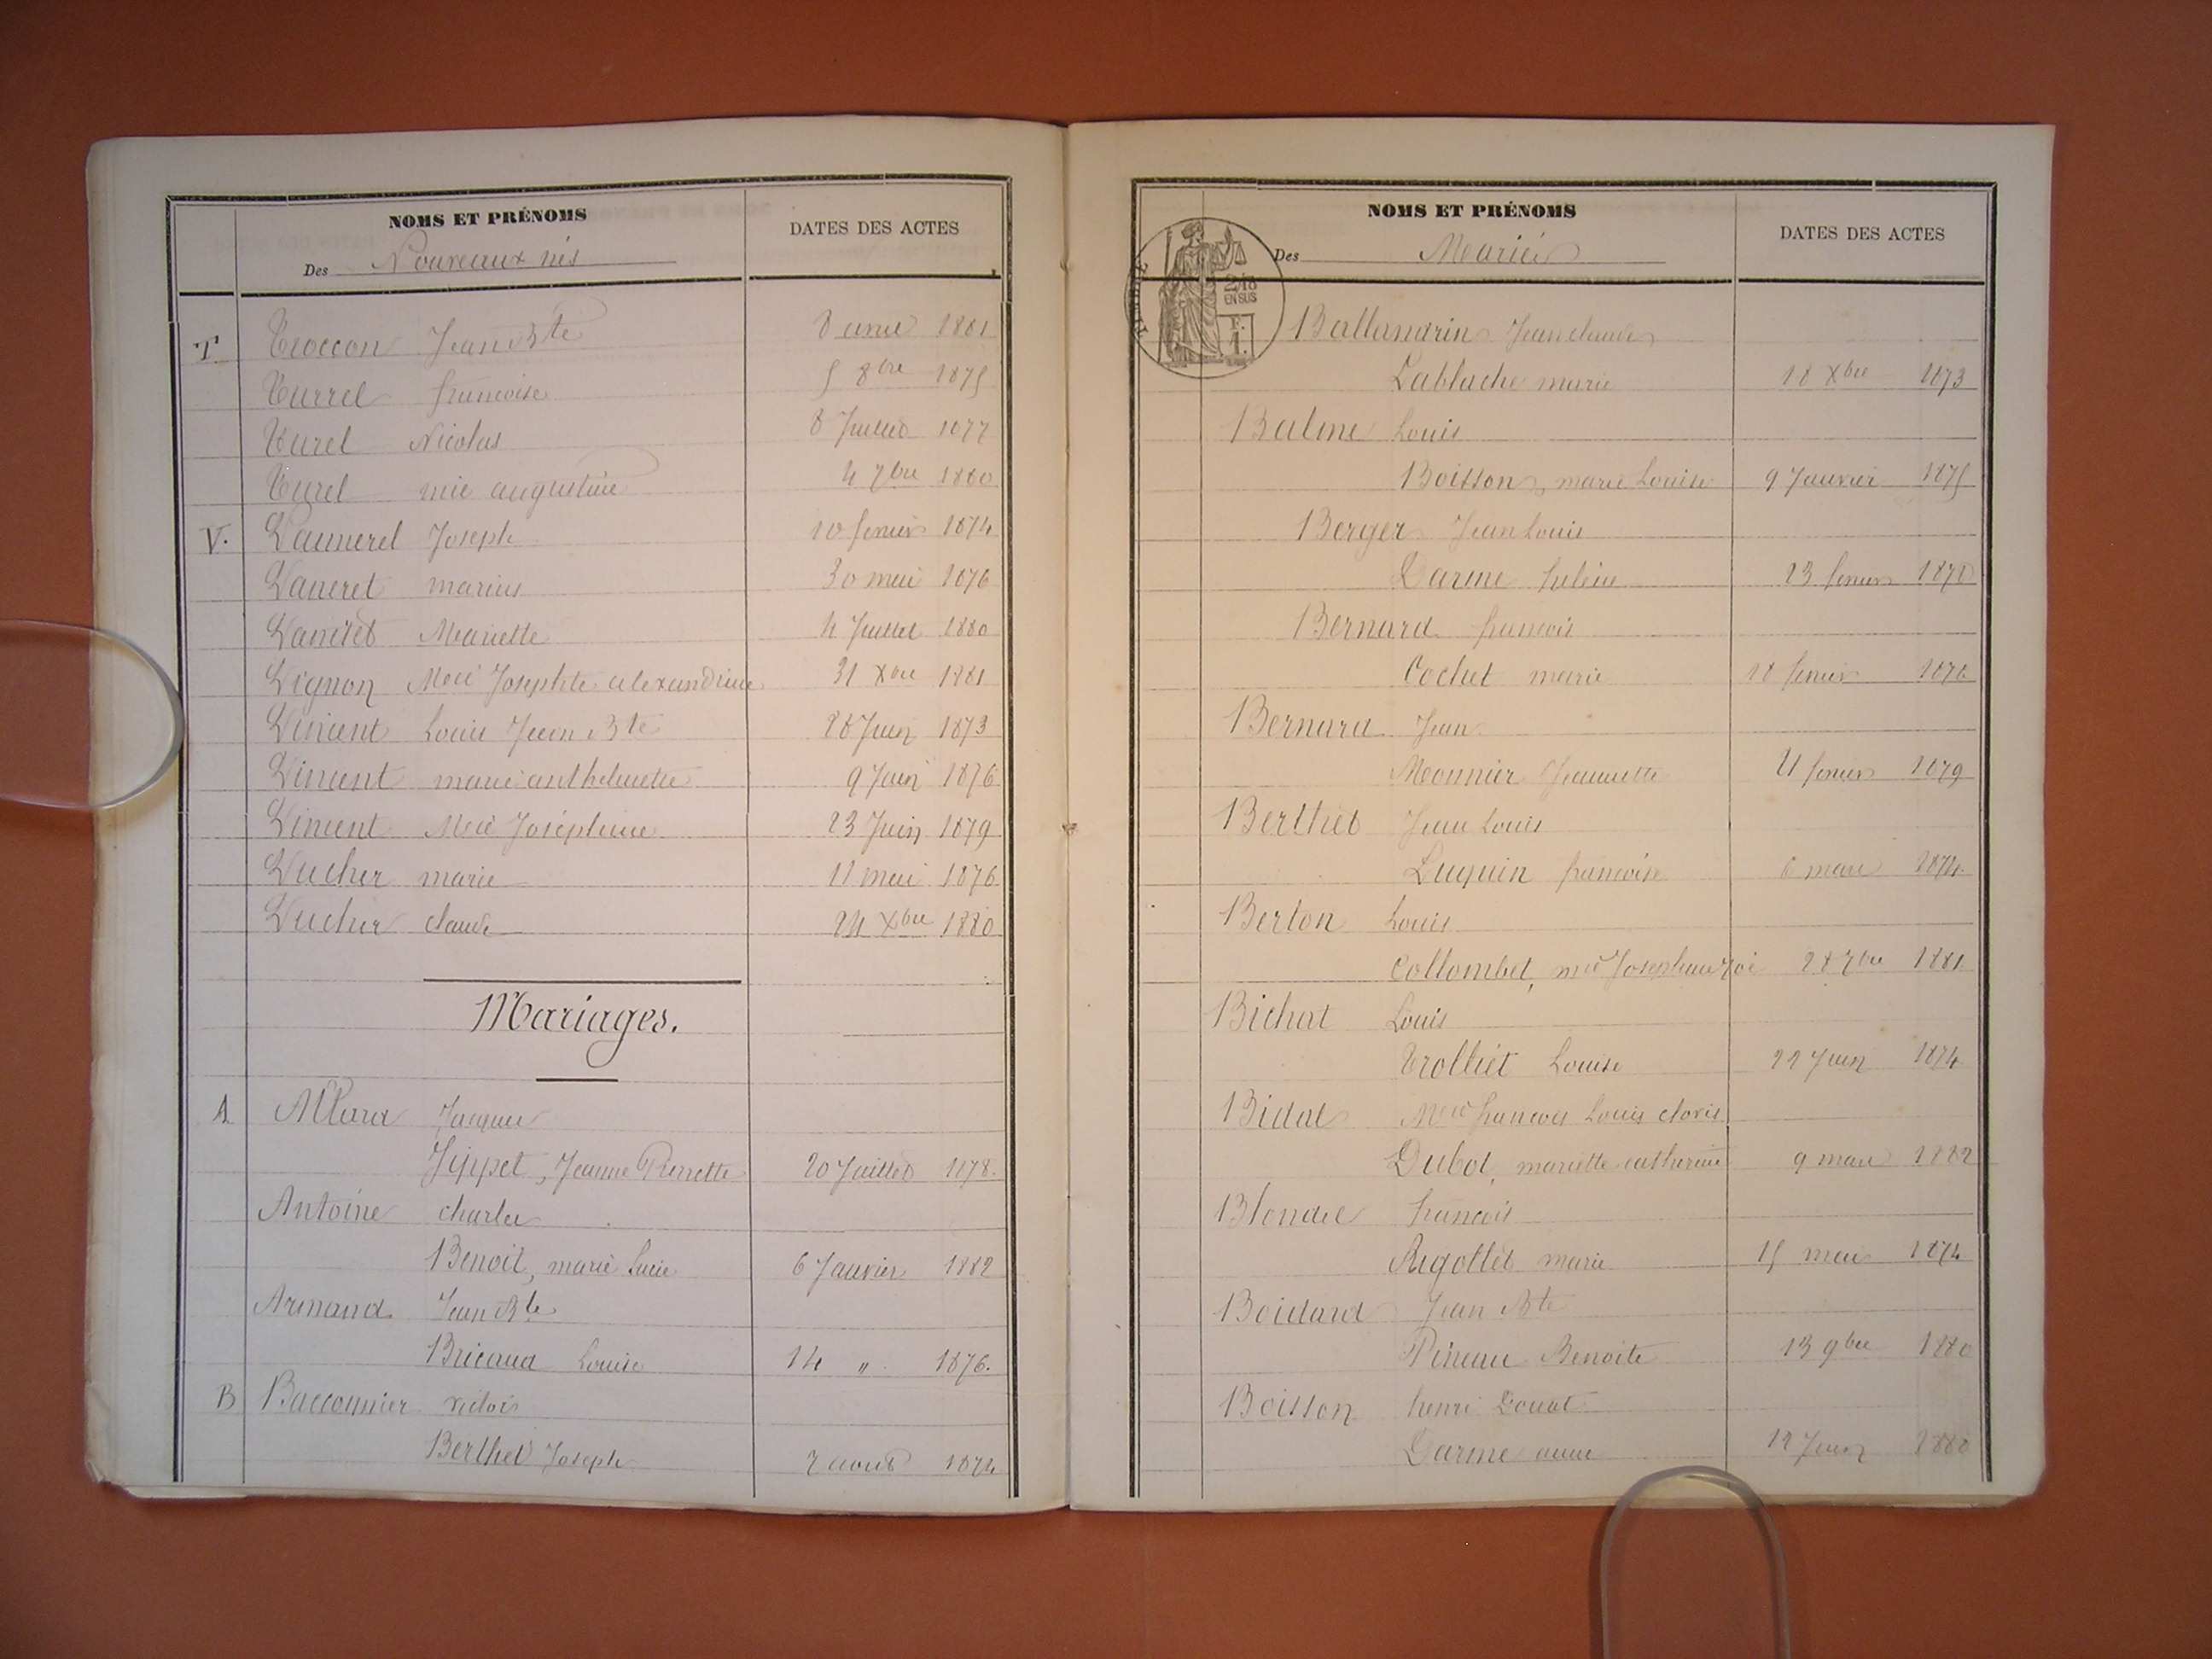 NOMS ET PRÉNOMS
Des Nouveaux nés
DATES DES ACTES
T Troccon Jean Bte 8 1881
Turrel françoise 5 8bre 1875
Turel Nicolas 8 Juillet 1877
Turel mie augustine 4 7bre 1880
V. Vauneret Joseph 10 fevrier 1874
Vaneret marius 30 mai 1876
Vaneret Mariette 4 Juillet 1880
Vignon Mie Josephte alexandrine 31 Xbre 1881
Vincent Louis Jean Bte 28 Juin 1873
Vincent marie anthelmette 9 Juin 1876
Vincent Mie Joséphine 23 Juin 1879
Vucher marie 11 mai 1876
Vucher claude 24 Xbre 1880
Mariages.
A Allard Jacques
Jippet, Jeanne Pierrette 20 Juillet 1878.
Antoine charles
Benoit, marie Lucie 6 Janvier 1882
Armand Jean Bte
Bricaud Louise 14 " 1876.
B Bacconnier victoir
Berthet Joseph 7 aout 1874
NOMS ET PRÉNOMS
Des Mariés
DATES DES ACTES
2/10
EN SUS
F.
1.
Ballandrin Jean claude
Lablache marie 18 Xbre 1873
Balme Louis
Boisson, marie Louise 9 Janvier 1875
Berger Jean Louis
Darme helène 23 fevrier 1878
Bernard francois
Cochet marie 18 fevrier 1876
Bernard Jean
Meunnier Jeannette 21 fevrier 1879
Berthet Jean Louis
Luquin francoise 6 mars 1874
Berton Louis
Collombet, mie Josephine Zoé 28 7bre 1881
Bichat Louis
Trolliet Louise 22 Juin 1874
Bidal francois Louis clovis
Dubot, mariette catherine 9 mars 1882
Blondel francois
Rigollet marie 15 mai 1874
Boidard Jean Bte
Pineau Benoite 13 9bre 1880
Boisson henri Donat
Darme anne 12 Juin 1880